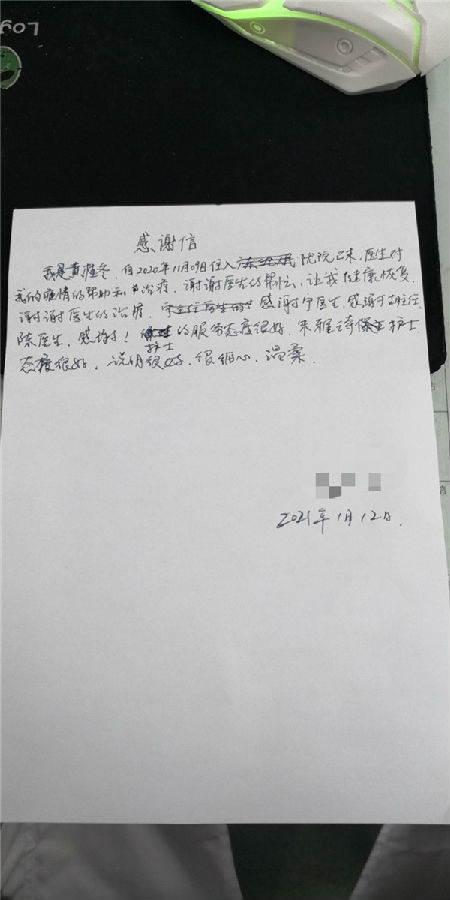 Log
感谢信
我是黄崔冬，自2020年11月09日住入 医院以来，医生对
我的病情的帮助和治疗，谢谢医生的帮助，让我健康恢复
谢谢医生的治疗， 感谢 医生，感谢主任
陈医生，感谢！护士的服务态度很好， 护士
态度很好，说明很好，很细心，温柔．
2021年1月12日．